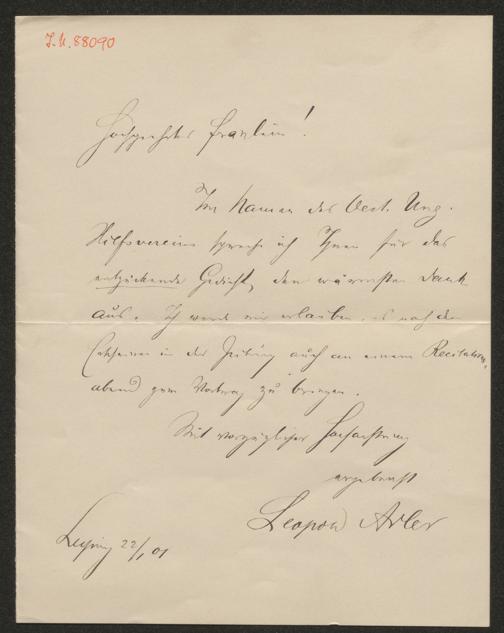 J.N. 88090
Hochgeehrtes Fräulein!
Im Namen des Oest. Ung.
Hilfsvereins spreche ich Ihnen für das
entzückende Gedicht, den wärmsten Dank
aus. Ich werde mir erlauben, es nach dem
Erscheinen in der Zeitung auch an einem Recitations-
abend zum Vortrag zu bringen.
Mit vorzüglicher Hochachtung
ergebenst
Leopold Adler
Leipzig 22/1 01